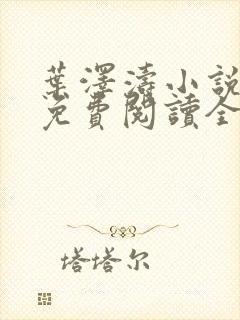 葉澤濤小說
免費閱讀全
塔塔尔